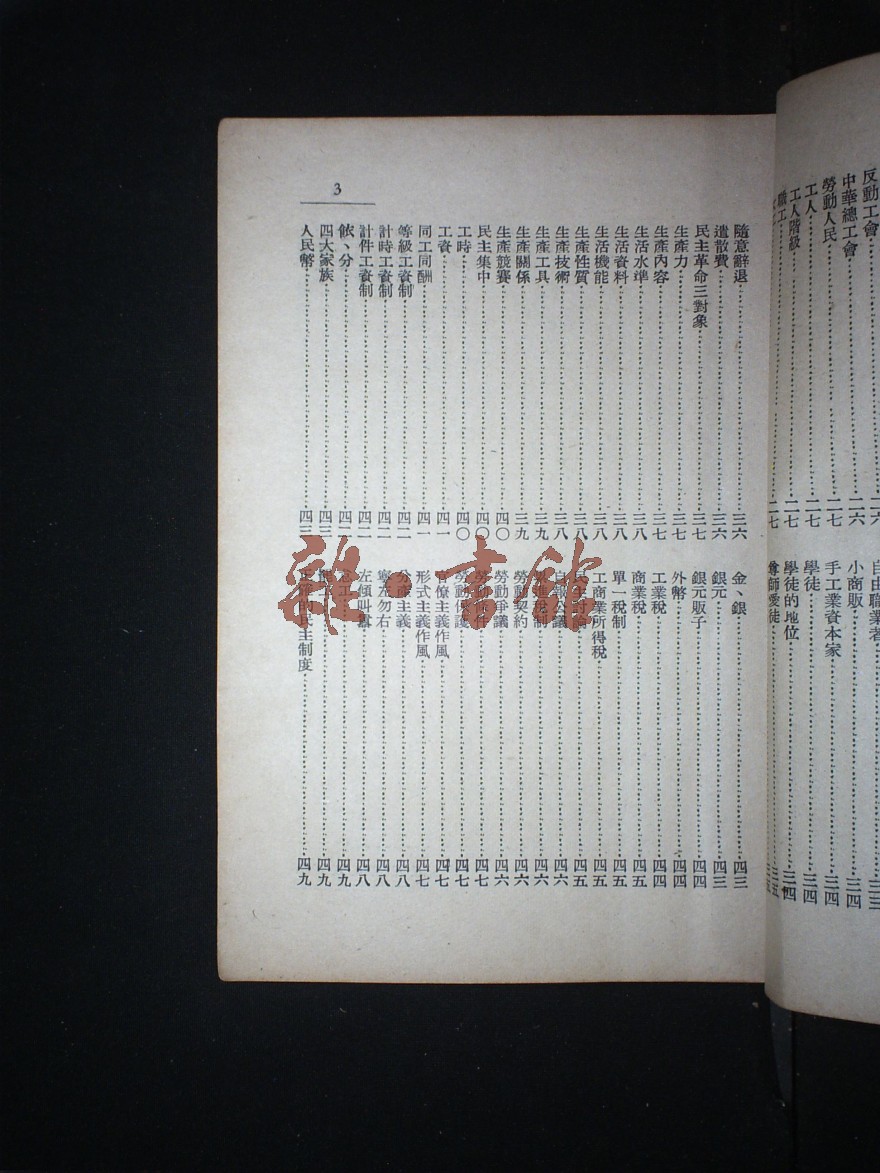 反動工會……二六
中華總工會……二六
勞動人民……二七
工人……二七
工人階級……二七
職工……二七
自由職業者……三三
小商販……三四
手工業資本家……三四
學徒……三四
學徒的地位……三四
尊師愛徒……三五
3
隨意辭退……三六
遣散費……三六
民主革命三對象……三七
生產力……三七
生產內容……三七
生活水準……三八
生活資料……三八
生活機能……三八
生產性質……三八
生產技術……三八
生產工具……三九
生產關係……三九
生產競賽……四〇
民主集中……四〇
工時……四〇
工資……四一
同工同酬……四一
等級工資制……四二
計時工資制……四二
計件工資制……四二
依、分……四二
四大家族……四三
人民幣……四三
金、銀……四三
銀元……四三
銀元販子……四四
外幣……四四
工業稅……四四
商業稅……四五
單一稅制……四五
工商業所得稅……四五
民主討論……四五
自報公議……四六
進稅制……四六
勞動契約……四六
勞動爭議……四六
勞動條件……四七
勞動保護……四七
官僚主義作風……四七
形式主義作風……四七
分產主義……四八
寧左勿右……四八
左傾叫囂……四八
工……四九
四九
正確的民主制度……四九
雜·書館